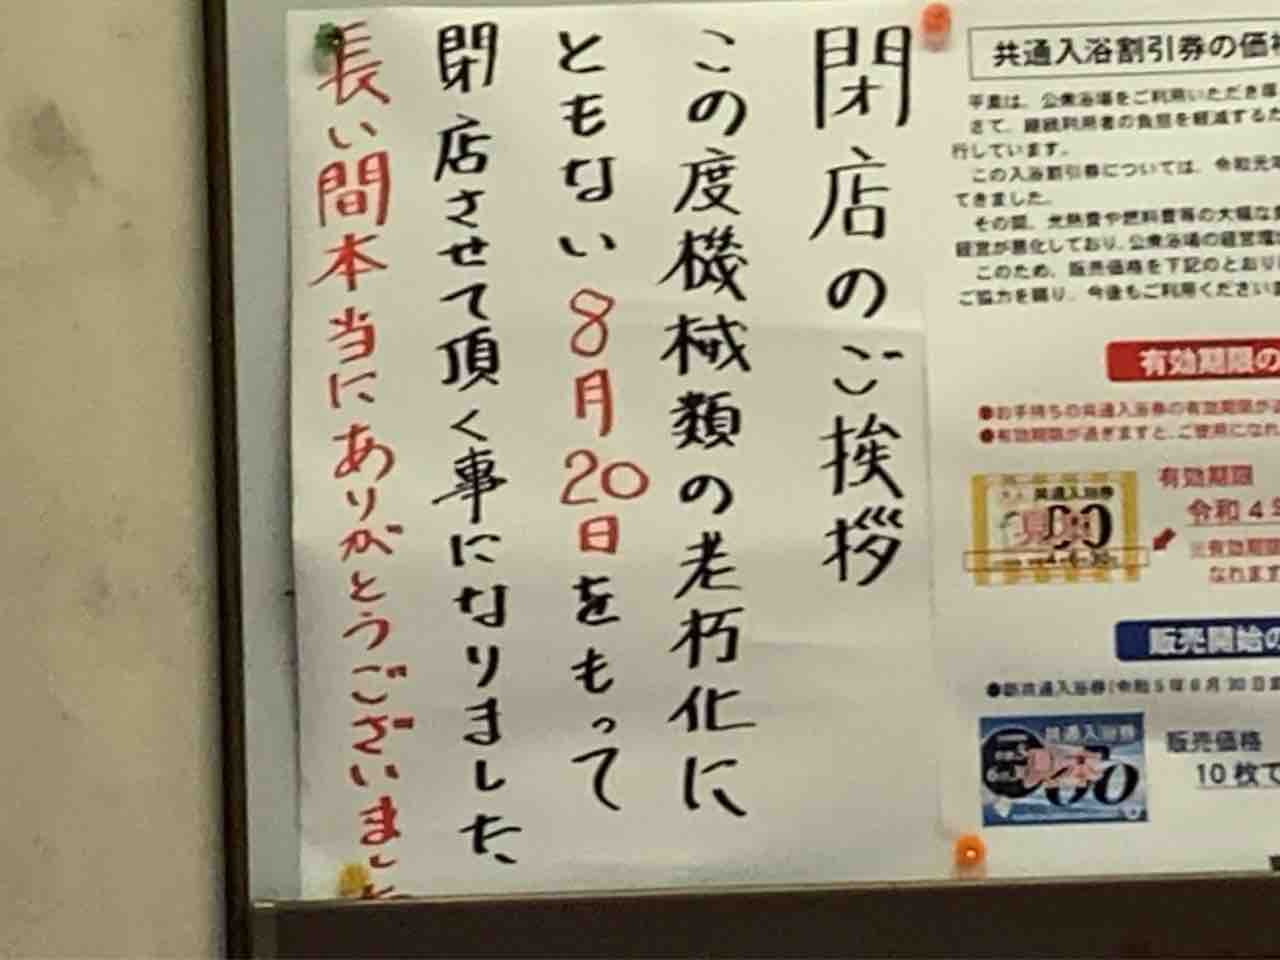 閉店のご挨拶
この度機械類の老朽化に
ともない8月20日をもって
閉店させて頂く事になりました
長い間本当にありがとうございまし
共通入浴割引券の価
平素は、公衆浴場をご利用いただき
さて、継続利用者の負担を軽減する
行しています。
この入浴割引券については、令和元
てきました。
その間、光熱費や燃料費等の大幅な
経営が悪化しており、公衆浴場の経営
このため、販売価格を下記のとおり
ご協力を賜り、今後もご利用ください
有効期限の
●お手持ちの共通入浴券の有効期限が
●有効期限が過ぎますと、ご使用になれ
共通入浴券
見本
有効期限
令和4
※有効期限
なれます
販売開始の
●新共通入浴券(令和5年6月30日
共通入浴券
見本
販売価格
10枚で